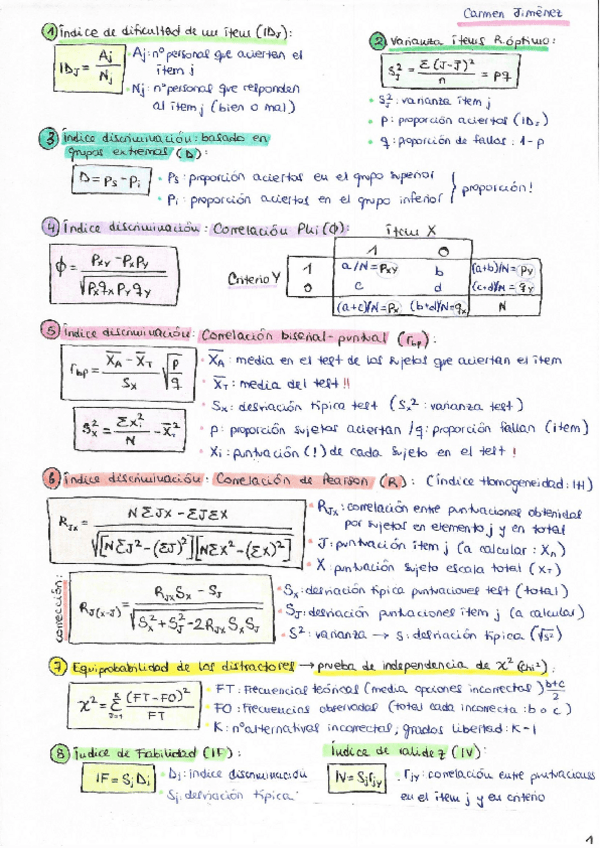 Carmen Jiménez
① Índice de dificultad de un ítem (IDj):
IDj = Aj / Nj
• Aj: nº personas que aciertan el
ítem j
• Nj: nº personas que responden
al ítem j (bien o mal)
② Varianza ítems R óptimo:
Sj² = Σ(J-J̄)² / n = pq
• Sj²: varianza ítem j
• p: proporción aciertos (IDj)
• q: proporción de fallos: 1-p
③ Índice discriminación: basado en
grupos extremos (D):
D = Ps - Pi
• Ps: proporción aciertos en el grupo superior
• Pi: proporción aciertos en el grupo inferior
} proporción!
④ Índice discriminación: Correlación Phi (Φ):
Φ = (Pxy - PxPy) / √(Px qx Py qy)
Ítem X
1 0
Criterio Y
1 a/N = Pxy b (a+b)/N = Py
0 c d (c+d)/N = qy
(a+c)/N = Px (b+d)/N = qx N
⑤ Índice discriminación: Correlación biserial-puntual (rbp):
rbp = (X̄A - X̄T) / Sx √(p/q)
Sx² = Σxi² / N - X̄T²
• X̄A: media en el test de los sujetos que aciertan el ítem
• X̄T: media del test!!
• Sx: desviación típica test (Sx²: varianza test)
• p: proporción sujetos aciertan / q: proporción fallan (ítem)
• Xi: puntuación (!) de cada sujeto en el test!
⑥ Índice discriminación: Correlación de Pearson (R): (Índice Homogeneidad: IH)
RJx = (NΣJX - ΣJΣX) / √([NΣJ² - (ΣJ)²][NΣX² - (ΣX)²])
• RJx: correlación entre puntuaciones obtenidas
por sujetos en elemento j y en total
• J: puntuación ítem j (a calcular: Xn)
• X: puntuación sujeto escala total (XT)
corrección:
RJ(x-J) = (RJx Sx - SJ) / √(Sx² + SJ² - 2RJx Sx SJ)
• Sx: desviación típica puntuaciones test (total)
• SJ: desviación puntuaciones ítem j (a calcular)
• S²: varianza → S: desviación típica (√S²)
⑦ Equiprobabilidad de los distractores → prueba de independencia de x² (chi²):
x² = Σ (FT - FO)² / FT
• FT: Frecuencias teóricas (media opciones incorrectas) b+c / 2
• FO: Frecuencias observadas (total cada incorrecta: b o c)
• K: nº alternativas incorrectas; grados libertad: K-1
⑧ Índice de Fiabilidad (IF):
IF = Sj Dj
• Dj: índice discriminación
Sj: desviación típica
Índice de validez (IV):
IV = Sj rjy
• rjy: correlación entre puntuaciones
en el ítem j y en criterio
1